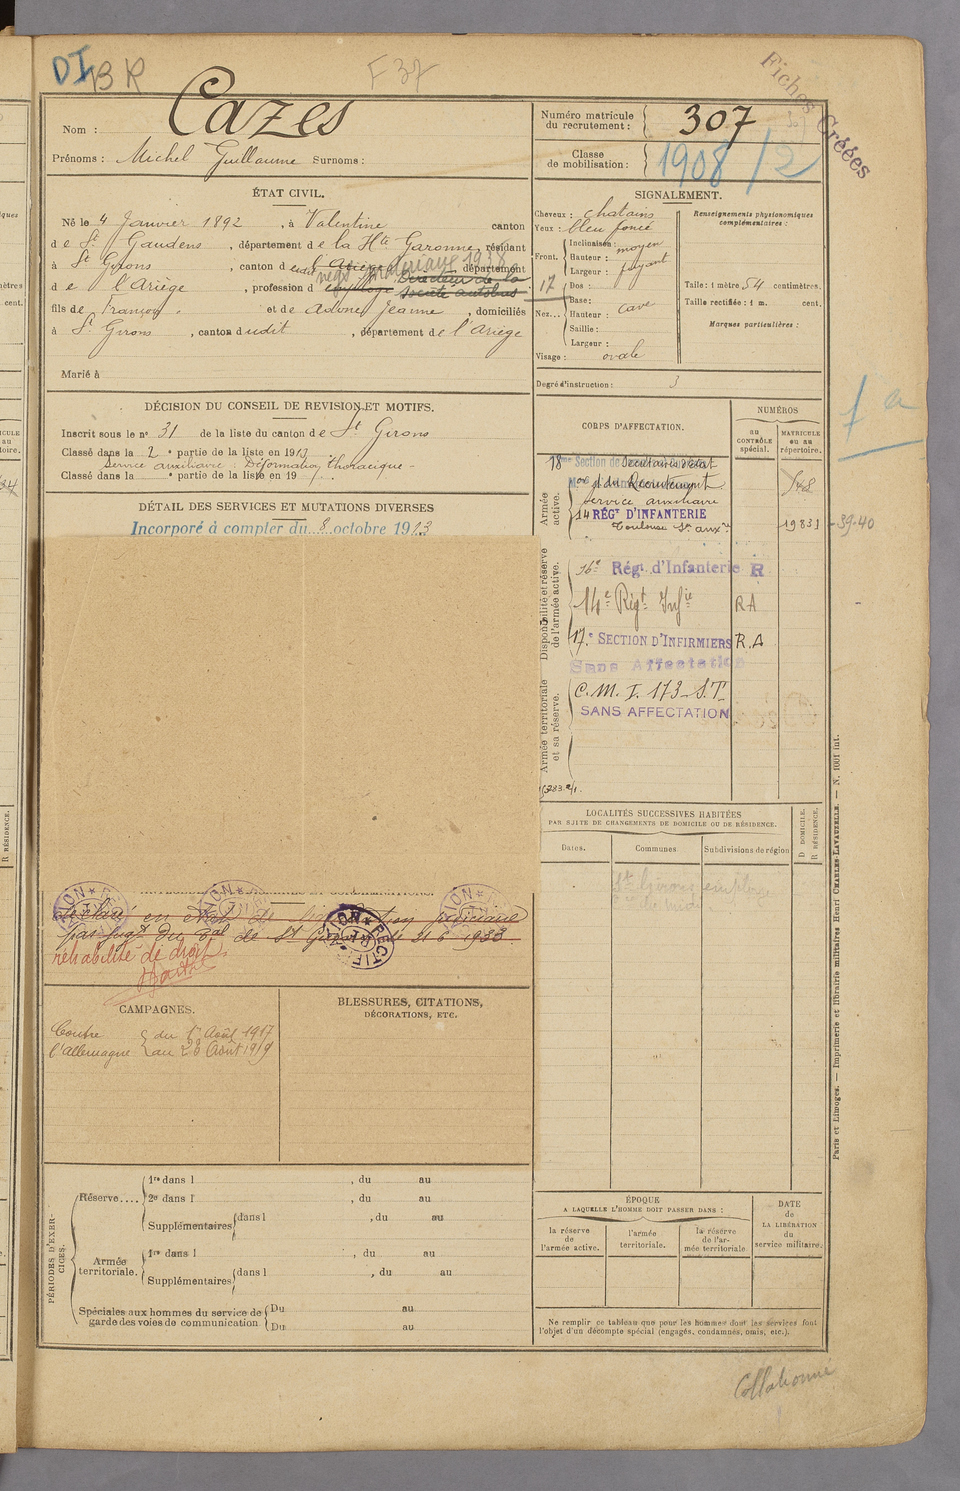 DI BR F37
Fiches Créées
Nom : Cazes
Prénoms : Michel Guillaume Surnoms :
Numéro matricule du recrutement : 307
Classe de mobilisation : 1908 /2
ÉTAT CIVIL.
Né le 4 Janvier 1892, à Valentine canton
de St Gaudens, département de la Hte Garonne, résidant
à St Girons, canton dudit l'Ariège, département
de l'Ariège, profession d employé Directeur de la Société autobus
fils de François et de Adoue Jeanne, domiciliés
à St Girons, canton dudit, département de l'Ariège
Marié à
SIGNALEMENT.
Cheveux : chatains
Yeux : bleu foncé
Front. Inclinaison : moyen
Hauteur :
Largeur : fuyant
17
Nez... Dos :
Base :
Hauteur : cave
Saillie :
Largeur :
Visage : ovale
Renseignements physionomiques complémentaires :
Taille : 1 mètre 54 centimètres.
Taille rectifiée : 1 m. cent.
Marques particulières :
Degré d'instruction : 3
DÉCISION DU CONSEIL DE REVISION ET MOTIFS.
Inscrit sous le no 31 de la liste du canton de St Girons
Classé dans la 2e partie de la liste en 1913
Service auxiliaire : Déformation thoracique
Classé dans la e partie de la liste en 19
DÉTAIL DES SERVICES ET MUTATIONS DIVERSES
Incorporé à compter du 8 octobre 1913
CORPS D'AFFECTATION.
NUMÉROS
au CONTRÔLE spécial.
MATRICULE ou au répertoire.
1a
Armée active.
18me Section de Secrétaires d'État
Mor et du Recrutement
service auxiliaire
14 RÉGT D'INFANTERIE
Toulouse St auxre 19831 - 39-40
Disponibilité et réserve de l'armée active.
Régt d'Infanterie R
14e Régt Infie RA
17e SECTION D'INFIRMIERS R.A
Sans Affectation
Armée territoriale et sa réserve.
C.M.I. 173 S.T
SANS AFFECTATION
déclaré en état de liquidation judiciaire
par jugt du Bal de St Girons le 21 6 1933
RECTIF
réhabilité de droit
CAMPAGNES.
Contre l'Allemagne
du 1er Août 1917
au 28 Août 1919
BLESSURES, CITATIONS,
DÉCORATIONS, ETC.
LOCALITÉS SUCCESSIVES HABITÉES
PAR SUITE DE CHANGEMENTS DE DOMICILE OU DE RÉSIDENCE.
Dates. Communes Subdivisions de région
D DOMICILE. R RÉSIDENCE.
St Girons
PÉRIODES D'EXERCICES.
Réserve.... 1re dans l , du au
2e dans l , du au
Supplémentaires dans l , du au
Armée territoriale. 1re dans l , du au
Supplémentaires dans l , du au
Spéciales aux hommes du service de garde des voies de communication. Du au
Du au
ÉPOQUE
A LAQUELLE L'HOMME DOIT PASSER DANS :
la réserve de l'armée active.
l'armée territoriale.
la réserve de l'armée territoriale
DATE de LA LIBÉRATION du service militaire.
Ne remplir ce tableau que pour les hommes dont les services font
l'objet d'un décompte spécial (engagés, condamnés, omis, etc.).
Paris et Limoges. — Imprimerie et librairie militaires Henri CHARLES-LAVAUZELLE. — N. 1001 int.
Collationné